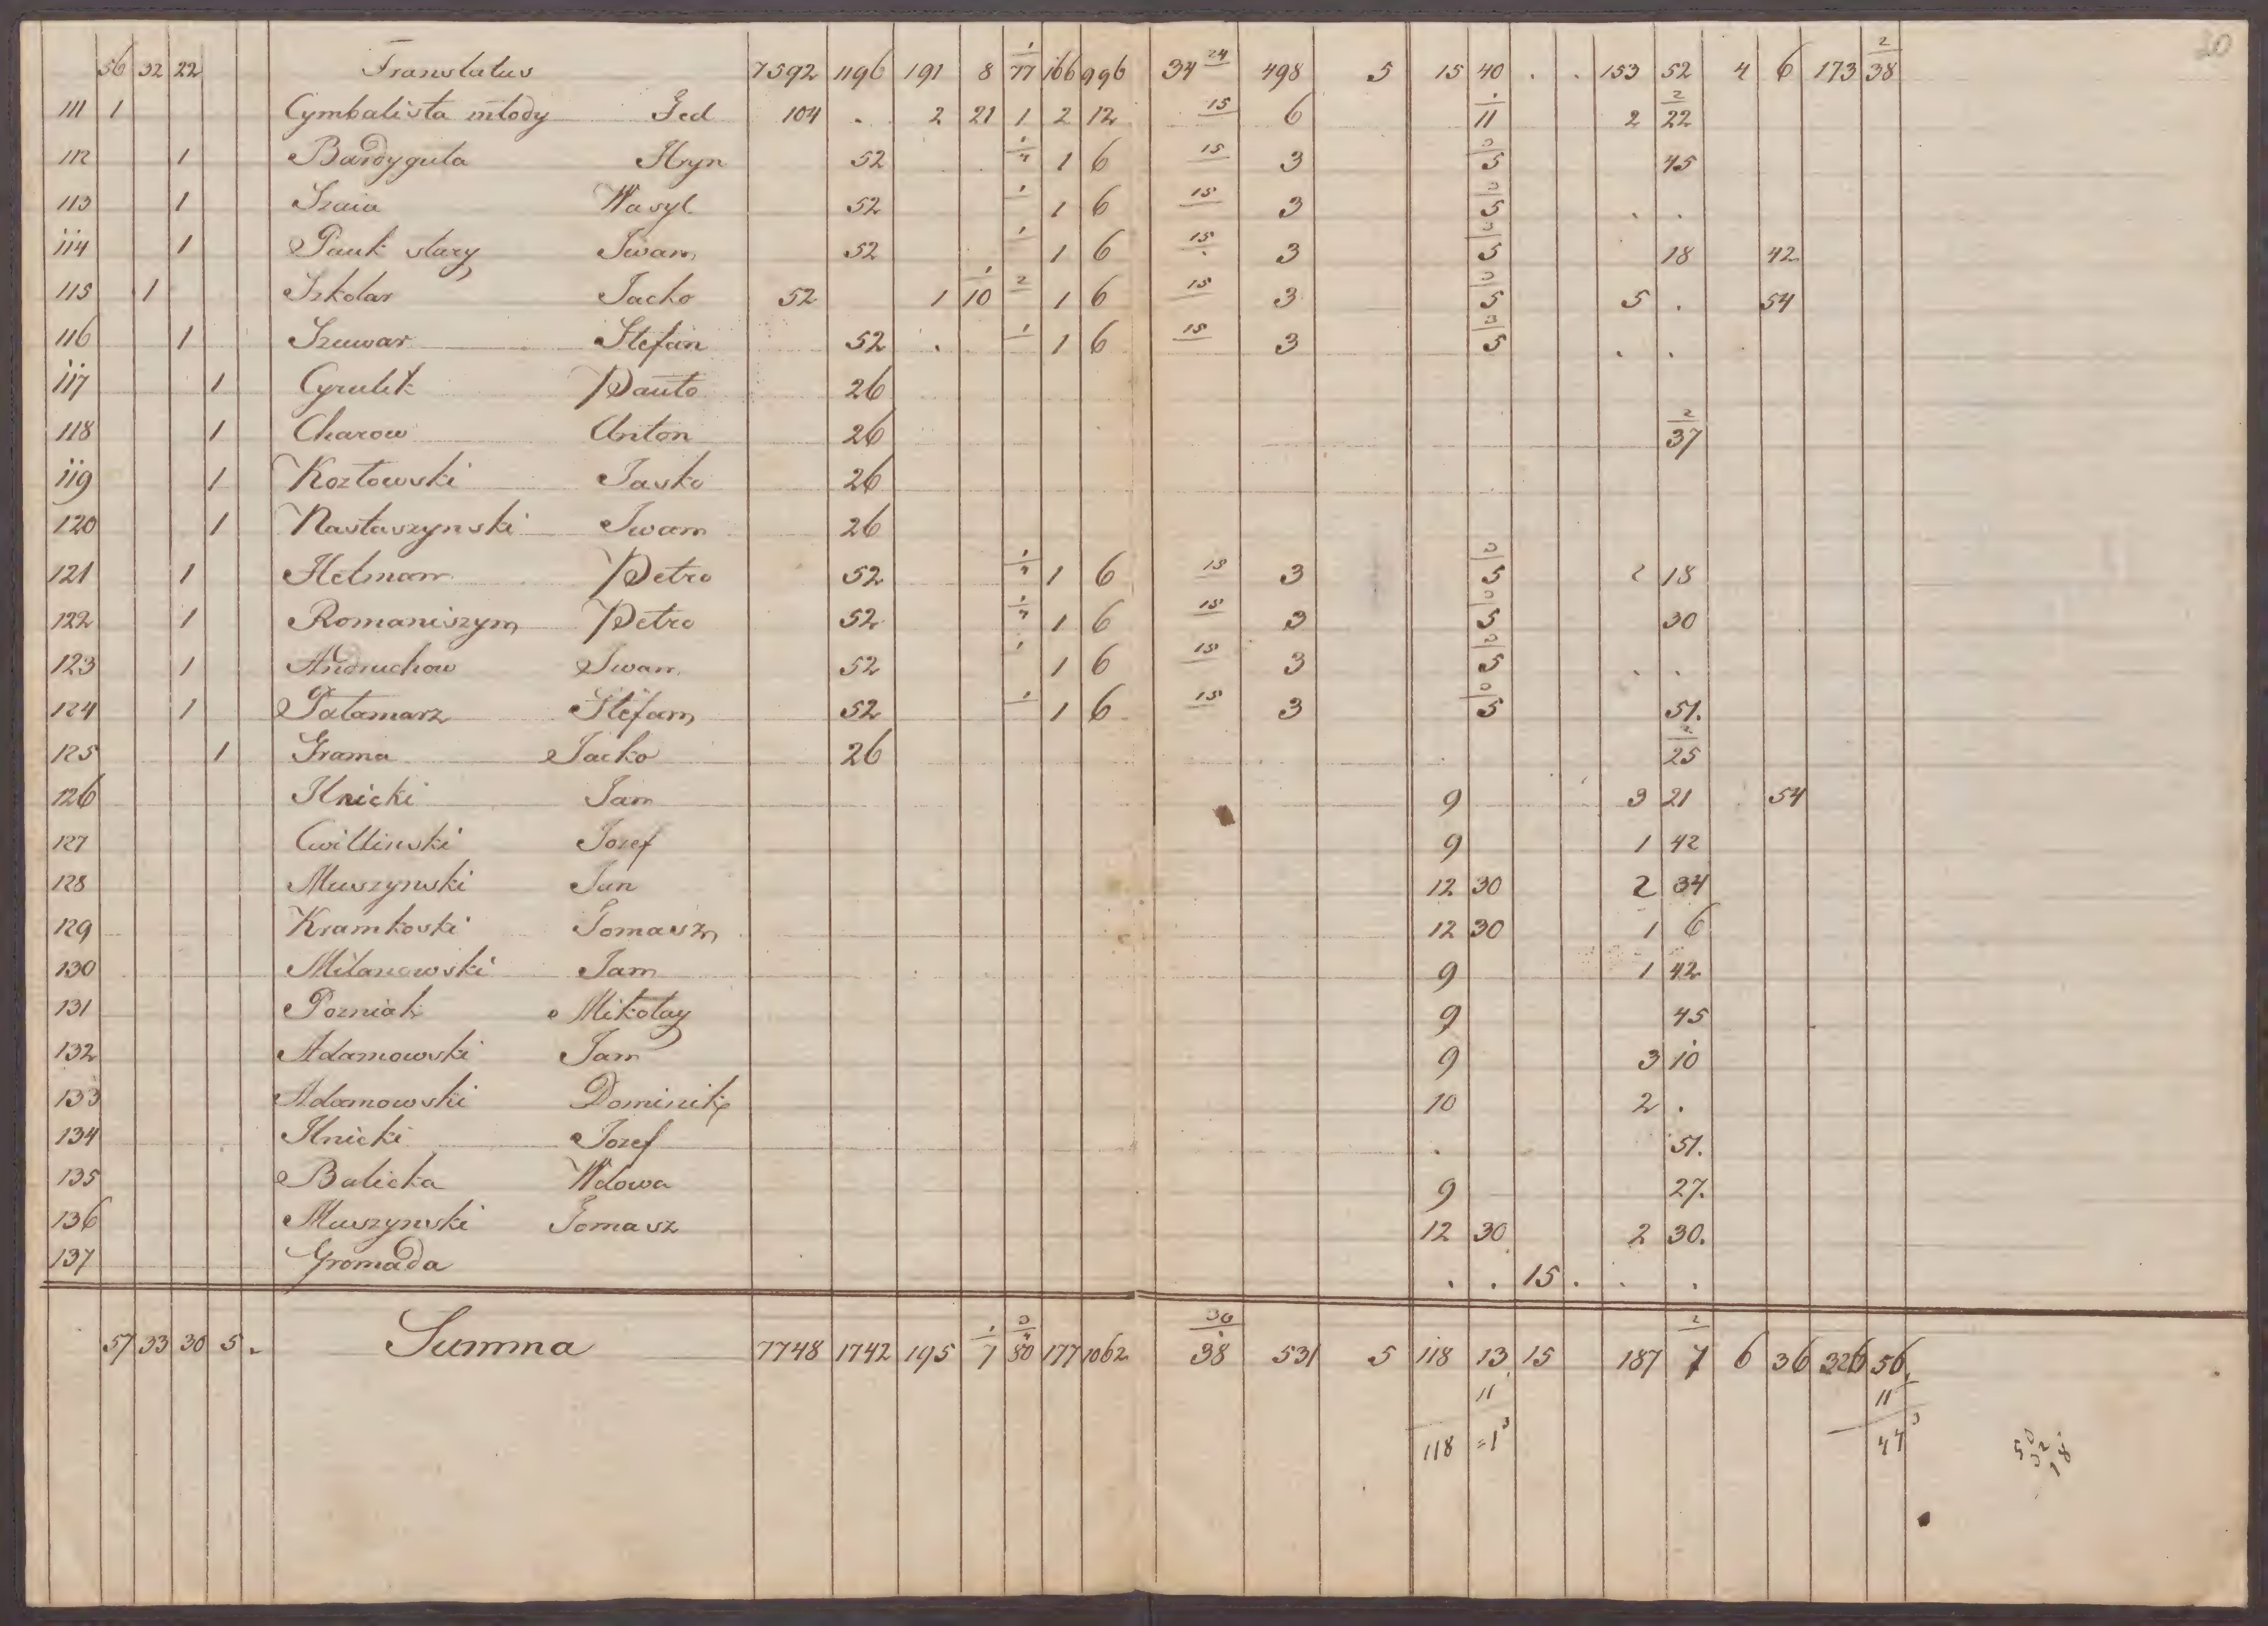 20
56 32 22 Translatus 7592 1196 191 8 1/77 166 996 34 24 498 5 15 40 . . 153 52 4 6 173 2/38
111 1 Cymbalista młody Fed 104 . 2 21 1 2 12 15 6 1/11 2 2/22
112 1 Bardyguła Hryn 52 1/4 1 6 15 3 3/5 45
113 1 Szaia Wasyl 52 1 1 6 15 3 3/5 . .
114 1 Pauk stary Iwan 52 1 1 6 15 3 3/5 18 42
115 1 Szkolar Jacko 52 1 1/10 2 1 6 15 3 3/5 5 . 54
116 1 Szuwar Stefan 52 . 1 1 6 15 3 3/5 . .
117 1 Cyrulik Pauło 26
118 1 Charow Anton 26 2/37
119 1 Kozłowski Jasko 26
120 1 Nastaszynski Iwan 26
121 1 Helman Petro 52 1/4 1 6 15 3 3/5 2 18
122 1 Romaniszyn Petro 52 1/4 1 6 15 3 3/5 30
123 1 Andruchow Iwan 52 1 1 6 15 3 3/5 . .
124 1 Pałamarz Stefan 52 1 1 6 15 3 3/5 51.
125 1 Grama Jacko 26 2/25
126 Ilnicki Jan 9 3 21 54
127 Cwillinski Jozef 9 1 42
128 Muszynski Jan 12 30 2 34
129 Kramkoski Tomasz 12 30 1 6
130 Milanowski Jan 9 1 42
131 Pozniak Mikołay 9 45
132 Adamowski Jan 9 3 10
133 Adamowski Dominik 10 2 .
134 Ilnicki Jozef . 51.
135 Balicka Wdowa 9 27.
136 Muszynski Tomasz 12 30 2 30.
137 Gromada . . 15 . . .
57 33 30 5 . Summa 7748 1742 195 1/7 3/4 80 177 1062 36/38 531 5 118 13 15 187 2/7 6 36 326 56
11 11
118 =1 3 44 3